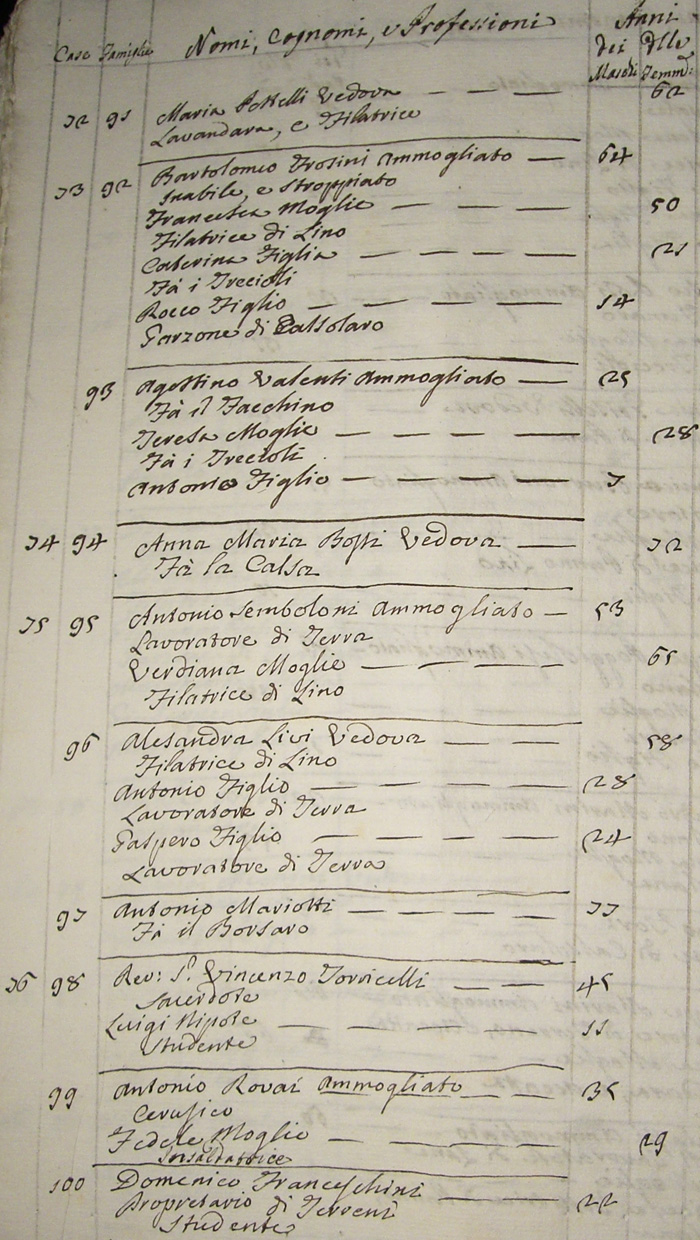 Case Famiglie Nomi, Cognomi, e Professioni Anni
dei Maschi delle Femm:
72 91 Maria Vedova — — — 62
Lavandara, e Filatrice
73 92 Bartolomeo Frosini Ammogliato — 64
Inabile, e Stroppiato
Francesca Moglie — — — — 50
Filatrice di Lino
Caterina Figlia — — — — 21
Fà i Treccioli
Rocco Figlio — — — — — 14
Garzone di Calsolaro
93 Agostino Valenti Ammogliato — 25
Fà il Facchino
Teresa Moglie — — — — 28
Fà i Treccioli
Antonio Figlio — — — — 7
74 94 Anna Maria Bossi Vedova — 72
Fà la Calsa
75 95 Antonio Semboloni Ammogliato — 53
Lavoratore di Terra
Verdiana Moglie — — — — 65
Filatrice di Lino
96 Alesandra Livi Vedova — — — 58
Filatrice di Lino
Antonio Figlio — — — — 28
Lavoratore di Terra
Gaspero Figlio — — — — 24
Lavoratore di Terra
97 Antonio Mariotti — — — — 77
Fà il Borsaro
76 98 Rev: S.r Vincenzo Torricelli — — — 45
Sacerdote
Luigi Nipote — — — — — 11
Studente
99 Antonio Rovai Ammogliato — — 35
Cerusico
Fedele Moglie — — — — 29
100 Domenico Franceschini — — — 22
Proprietario di Terreni
Studente